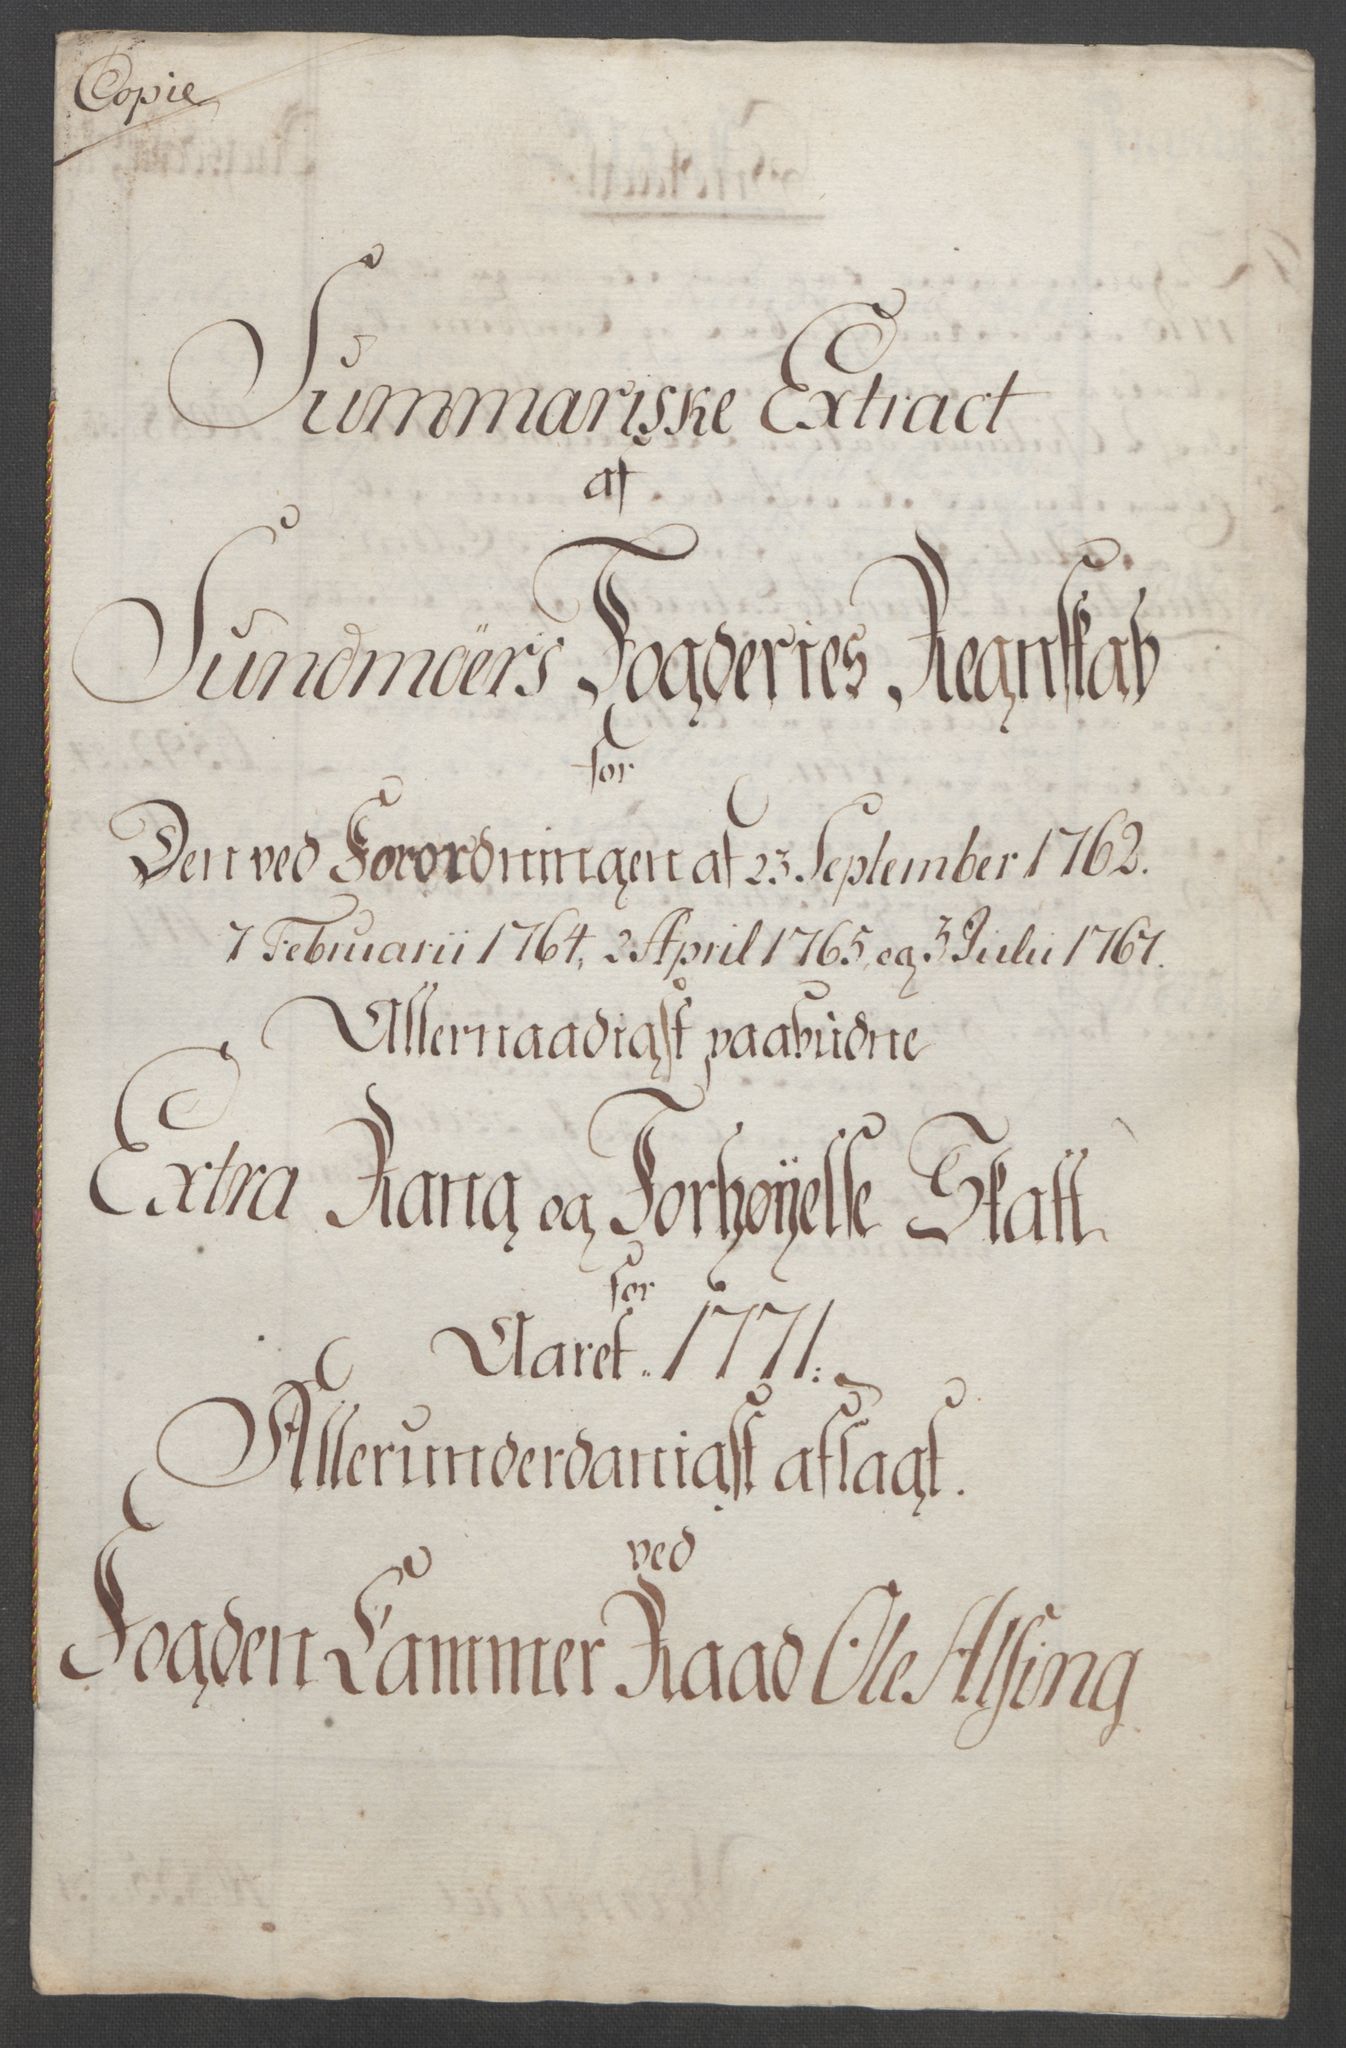 Copie
Summariske Extract
af
Sundmöers Fogderies Regnskab
for
Den ved Forordningen af 23 September 1762.
7 Februarii 1764, 2 April 1765, og 3 Julii 1767.
Allernaadigst paabudne
Extra Rang og Forhøyelse Skatt
for
Aaret. 1771.
Allerunderdanigst aflagt.
ved
Fogden Cammer Raad Ole Alsing